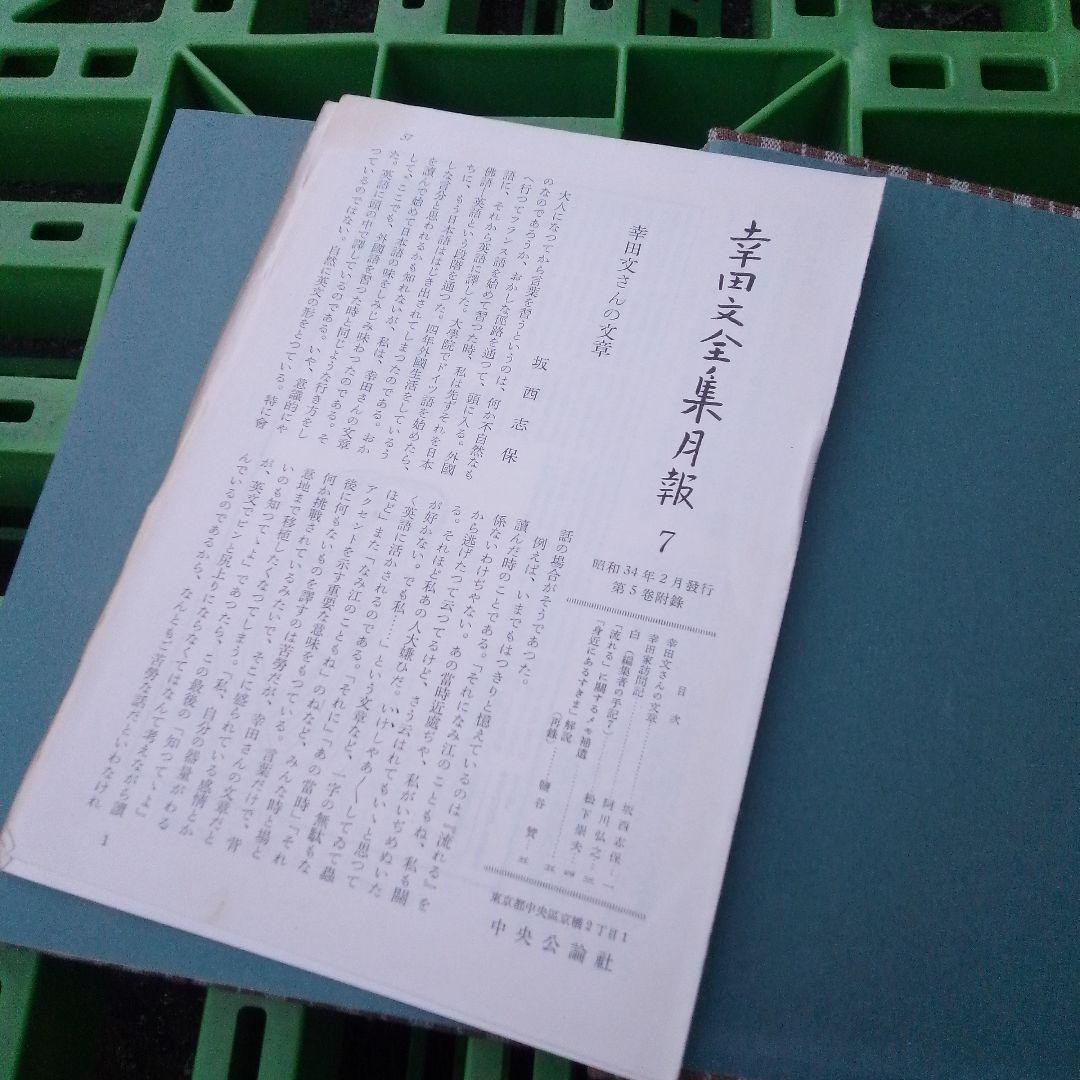 幸田文全集月報 7
昭和34年2月發行
第5巻附錄
目次
幸田文さんの文章………坂西志保…一
幸田家訪問記………阿川弘之…三
白(編集者の手記7)………松下崇夫…四
「流れる」に關するメモ補遺………五
「身近にあるすきま」解說(再錄)……鹽谷贊…五
東京都中央區京橋2丁目1
中央公論社
幸田文さんの文章
坂西志保
大人になつてから言葉を習うというのは、何か不自然なも
のなのであろうか、おかしな徑路を通つて、頭に入る。外國
へ行つてフランス語を始めて習つた時、私は先ずそれを日本
語に、それから英語に譯した。大學院でドイツ語を始めたら、
佛語―英語という段階を通つた。四年外國生活をしているう
ちに、もう日本語ははじき出されてしまつたのである。おか
しな言分と思われるかも知れないが、私は、幸田さんの文章
を讀んで始めて日本語の味をしみじみ味わつたのである。そ
して、ここでも、外國語を習つた時と同じような行き方をし
た。英語に頭の中で譯しているのである。いや、意識的にや
つているのではない。自然に英文の形をとつている。特に會
話の場合がそうであつた。
例えば、いまでもはつきりと憶えているのは『流れる』を
讀んだ時のことである。「それになみ江のこともね、私も關
係ないわけぢやない。あの當時近處ぢや、私がいぢめぬいた
から逃げたつて云つてるけど、さう云はれてもいゝと思つて
る。それほど私あの人大嫌ひだ。いけしやあ〱してゐて蟲
が好かない。でも私……」という文章など、一字の無駄もな
く英語に活かされるのである。「それに」「あの當時」「それ
ほど」また「なみ江のこともね」のねなど、みんな時と場と
アクセントを示す重要な意味をもつている。言葉だけで、背
後に何もないものを譯すのは苦勞だが、幸田さんの文章だと
何か挑戰されているみたいで、そこに盛られている感情とか
意地まで移植したくなつてしまう。「私、自分の器量がわる
いのも知つてゝよ」であつたら、この最後の「知つてゝよ」
が、英文でピンと尻上りにならなくてはなんて考えながら讀
んでいるのであるから、なんともご苦勞な話だといわなけれ
57
1